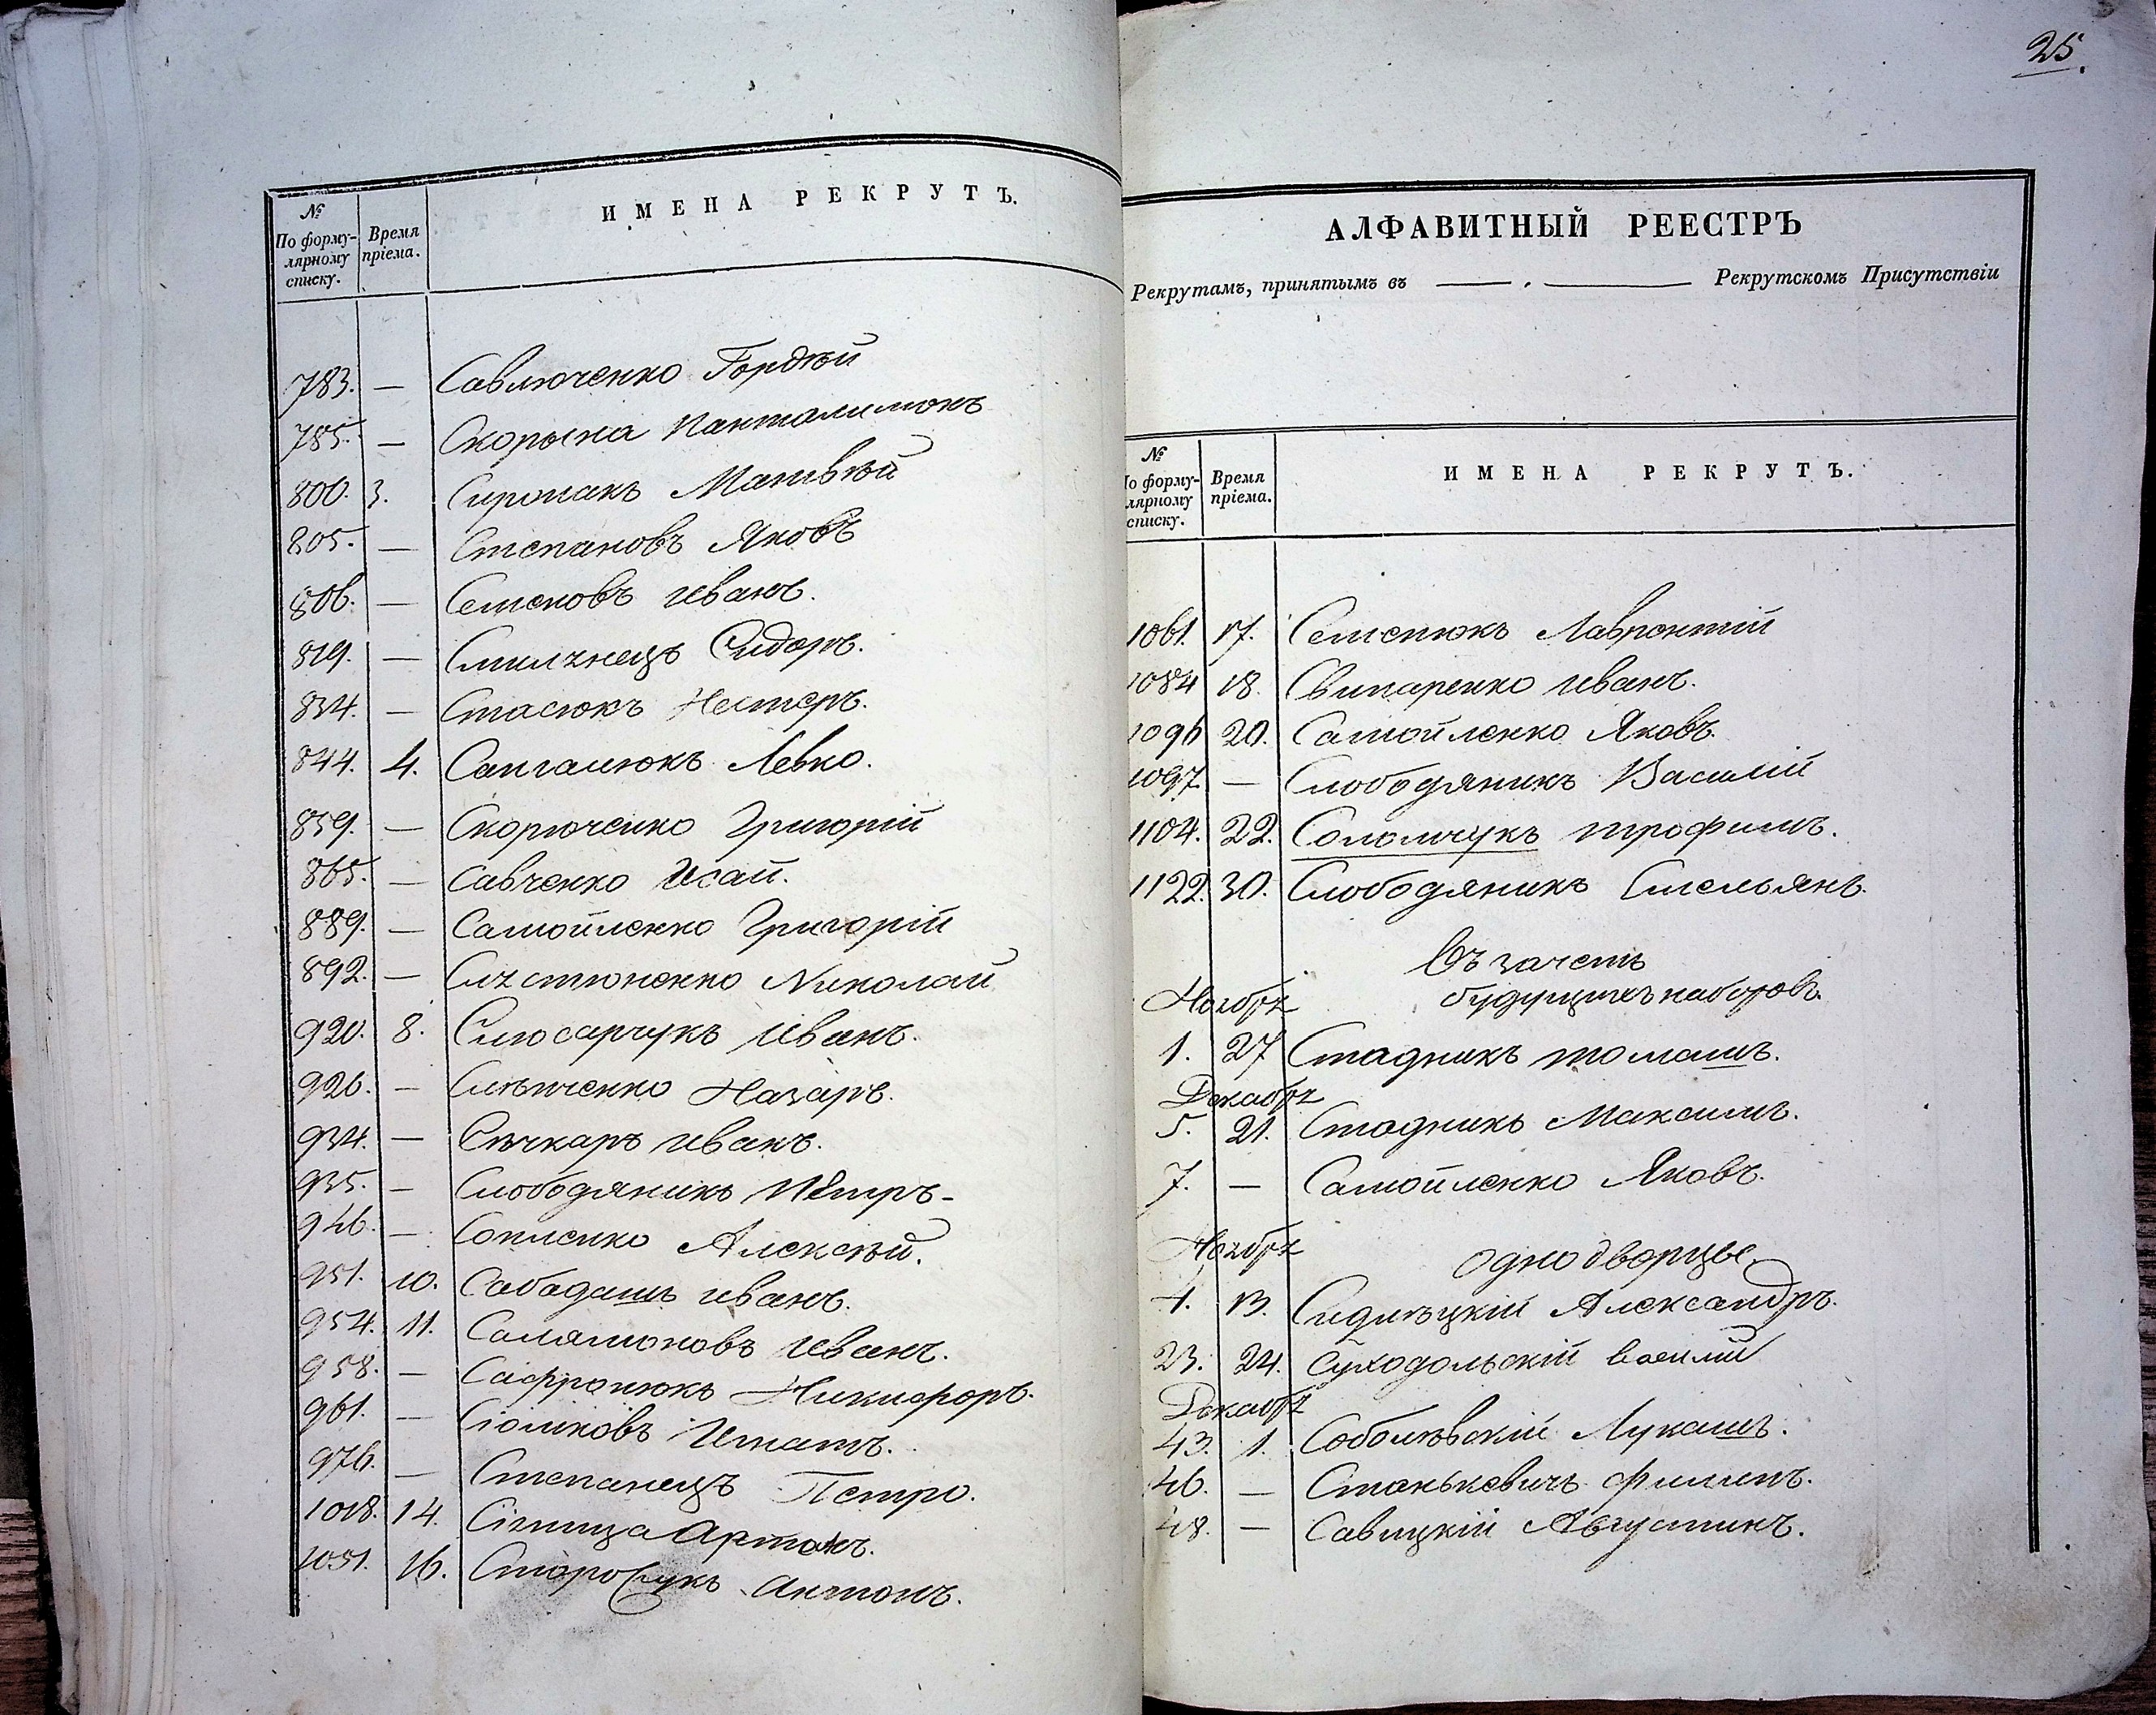 №
По форму-
лярному
списку.
Время
пріема.
ИМЕНА РЕКРУТЪ.
783. — Савлюченко Гордѣй
785. — Скорына Панталимонъ
800. 3. Сиропакъ Матвѣй
805. — Степановъ Яковъ
806. — Семеновъ Иванъ.
819. — Сидоръ.
834. — Стасюкъ Нестеръ.
844. 4. Левко.
859. — Скорюченко Григорій
865. — Савченко Исай.
889. — Самойленко Григорій
892. — Николай
920. 8. Слюсарчукъ Иванъ.
926. — Слѣпченко Назаръ.
934. — Сѣчкаръ Иванъ.
935. — Слободяникъ Пётръ-
946. — Сопленко Алексѣй.
951. 10. Сабадашъ Иванъ.
954. 11. Саламоновъ Иванъ.
958. — Сафронюкъ Никифоръ.
961. — Игнатъ.
976. — Степанецъ Петро.
1018. 14. Сѣгница
1051. 16. Антонъ.
25.
АЛФАВИТНЫЙ РЕЕСТРЪ
Рекрутамъ, принятымъ въ — . — Рекрутскомъ Присутствіи
№
По форму-
лярному
списку.
Время
пріема.
ИМЕНА РЕКРУТЪ.
1061. 17. Семенюкъ Лаврентій
1084 18. Свинаренко Иванъ.
1096 20. Самойленко Яковъ.
1097. — Слободяникъ Василій
1104. 22. Соломчукъ Трофимъ.
1122. 30. Слободяникъ Емельянъ.
Въ зачетъ
Ноябрь будущихъ наборовъ.
1. 27 Стадникъ Томашъ.
Декабрь
5. 21. Стадникъ Максимъ.
7. — Самойленко Яковъ.
Ноябрь Однодворцы.
1. 13. Сидлѣцкій Александръ.
23. 24. Суходольскій Василій
Декабрь
43. 1. Соболѣвскій Лукашъ.
46. — Станькевичъ Филипъ.
48. — Савицкій Августинъ.